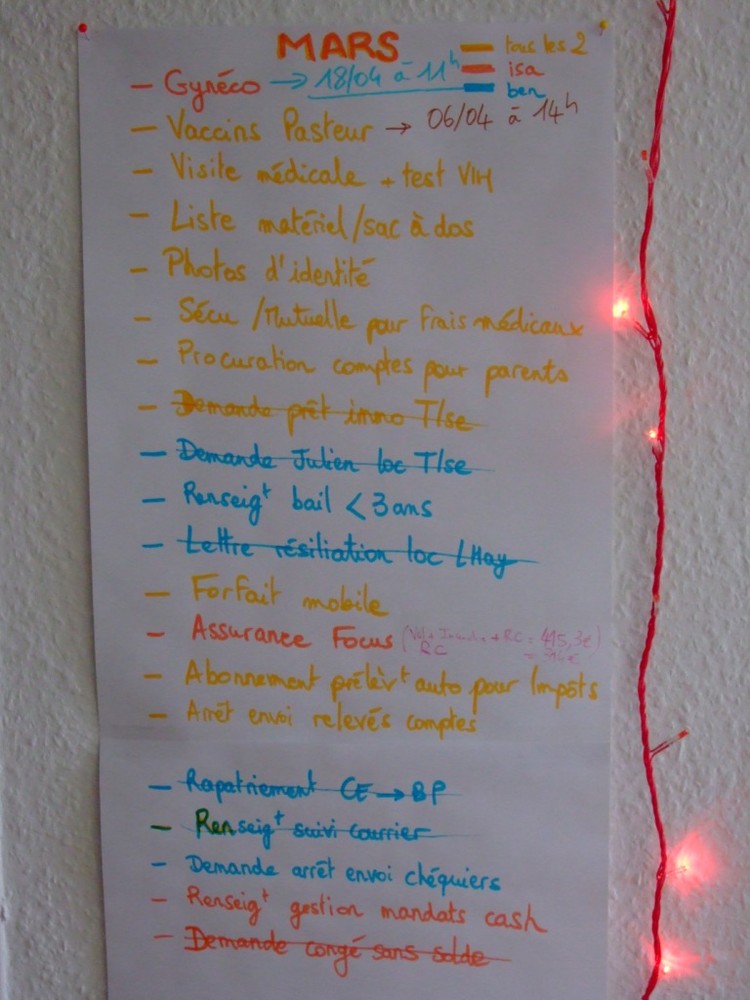 MARS
tous les 2
isa
ben
- Gynéco → 18/04 à 11h
- Vaccins Pasteur → 06/04 à 14h
- Visite médicale + test VIH
- Liste matériel/sac à dos
- Photos d'identité
- Sécu /Mutuelle pour frais médicaux
- Procuration comptes pour parents
- Demande prêt immo Tlse
- Demande Julien loc Tlse
- Renseigt bail < 3 ans
- Lettre résiliation loc LHay
- Forfait mobile
- Assurance Focus (Vol + + RC = 415,3€)
RC
- Abonnement prélèvt auto pour Impôts
- Arrêt envoi relevés comptes
- Rapatriement CE → BP
- Renseigt suivi courrier
- Demande arrêt envoi chéquiers
- Renseigt gestion mandats cash
- Demande congé sans solde